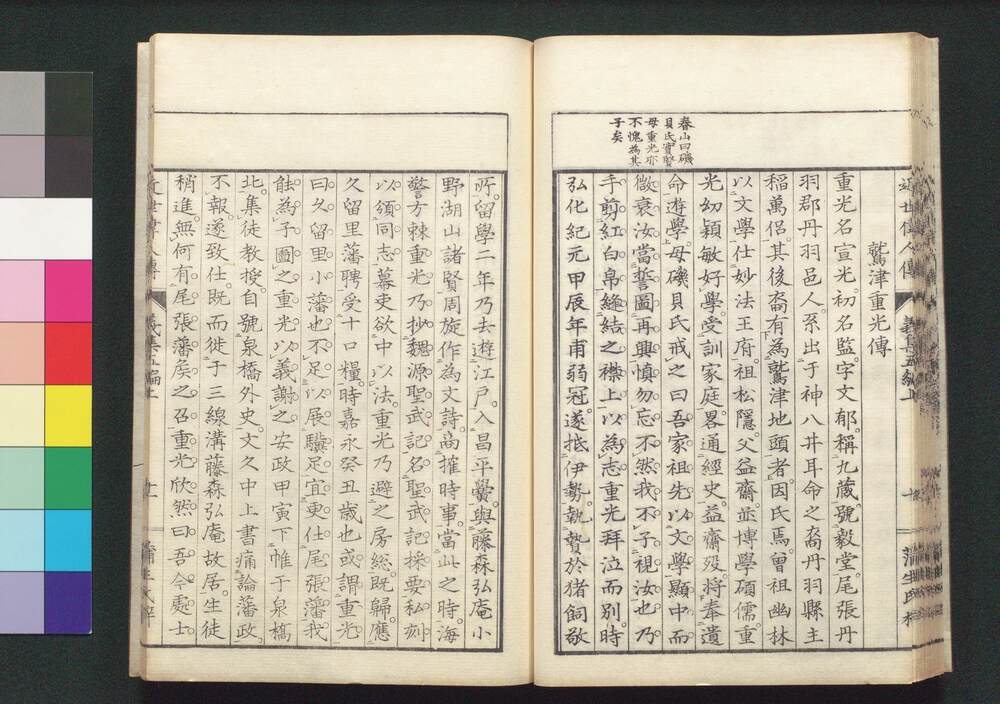 近世偉人傳
鷲津重光傳
重光名宣光。初名監。字文郁。稱九藏。號毅堂。尾張丹
羽郡丹羽邑人。系出于神八井耳命之裔丹羽縣主
稲萬侶。其後裔有為鷲津地頭者。因氏焉。曾祖幽林
以文學仕妙法王府。祖松隱。父益齋。並博學碩儒。重
光幼穎敏好學。受訓家庭。畧通經史。益齋歿。將奉遺
命遊學。母磯貝氏戒之曰。吾家祖先以文學顯。中而
微衰。汝當誓圖再興。慎勿忘。不然我不子視汝也。乃
手剪紅白帛。縫結之襟上以為志。重光拜泣而別。時
弘化紀元甲辰年甫弱冠。遂抵伊勢。執贄於猪飼敬
春山曰磯
貝氏實賢
母重光亦
不愧為其
子矣
所。留學二年。乃去遊江戸。入昌平黌。與藤森弘庵小
野湖山諸賢周旋。作為文詩。商搉時事。當此之時。海
警方棘。重光乃抄魏源聖武記。名聖武記採要。私刻
以頒同志。幕吏欲中以法。重光乃避之房総。既歸。應
久留里藩聘。受十口糧。時嘉永癸丑歳也。或謂重光
曰。久留里小藩也。不足以展驥足。宜更仕尾張藩。我
能為子圖之。重光以義謝之。安政甲寅。下帷于泉橋
北。集徒教授。自號泉橋外史。文久中上書痛論藩政。
不報。遂致仕。既而徙于三線溝藤森弘庵故居。生徒
稍進。無何有尾張藩矦之召。重光欣然曰。吾今處士